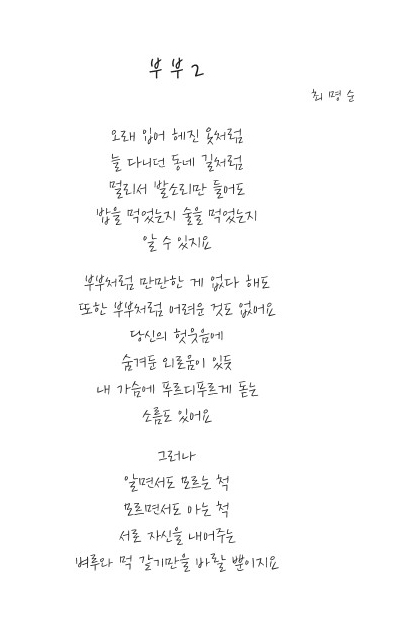 부부 2
최명순
오래 입어 헤진 옷처럼
늘 다니던 동네 길처럼
멀리서 발소리만 들어도
밥을 먹었는지 술을 먹었는지
알 수 있지요
부부처럼 만만한 게 없다 해도
또한 부부처럼 어려운 것도 없어요
당신의 헛웃음에
숨겨둔 외로움이 있듯
내 가슴에 푸르디푸르게 돋는
소름도 있어요
그러나
알면서도 모르는 척
모르면서도 아는 척
서로 자신을 내어주는
벼루와 먹 같기만을 바랄 뿐이지요